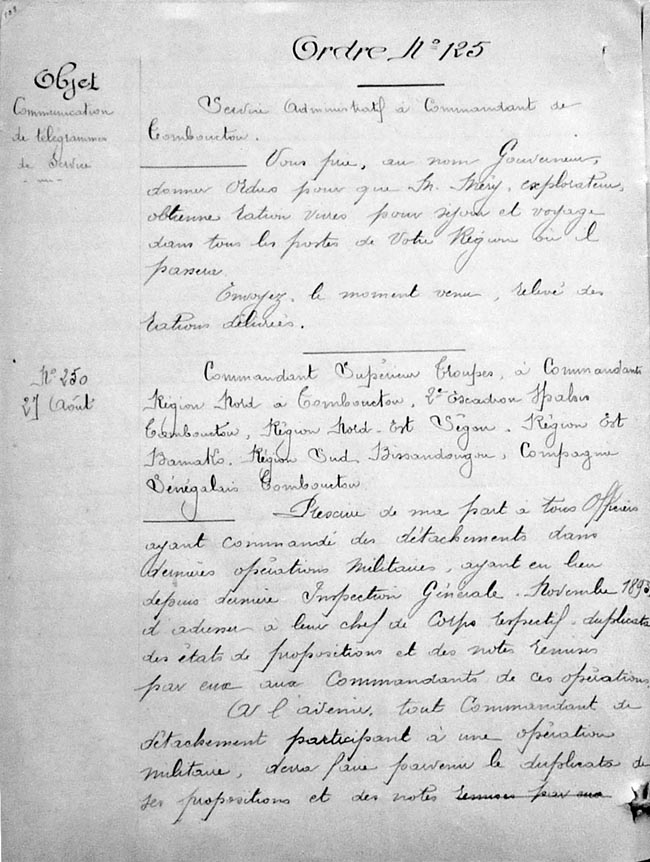 Ordre N° 125
Objet
Communication
de télégrammes
de Service
Service Administratif à Commandant de
Tombouctou.
Vous prie, au nom Gouverneur,
donner Ordres pour que M. Méry, explorateur,
obtienne ration vivres pour séjour et voyage
dans tous les postes de Votre Région où il
passera.
Envoyez, le moment venu, relevé des
rations délivrées.
N° 250
27 Août
Commandant Supérieur Troupes, à Commandants
Région Nord à Tombouctou, 2e Escadron Spahis
Tombouctou, Région Nord-Est Ségou. Région Est
Bamako. Région Sud Bissandougou, Compagnie
Sénégalais Tombouctou
Prescrire de ma part à tous Officiers
ayant commandé des détachements dans
dernières opérations militaires, ayant eu lieu
depuis dernière Inspection Générale. Novembre 1893
d'adresser à leur chef de Corps respectif duplicata
des états de propositions et des notes remises
par eux aux Commandants de ces opérations.
A l'avenir, tout Commandant de
détachement participant à une opération
militaire, devra faire parvenir le duplicata de
ses propositions et des notes remises par eux